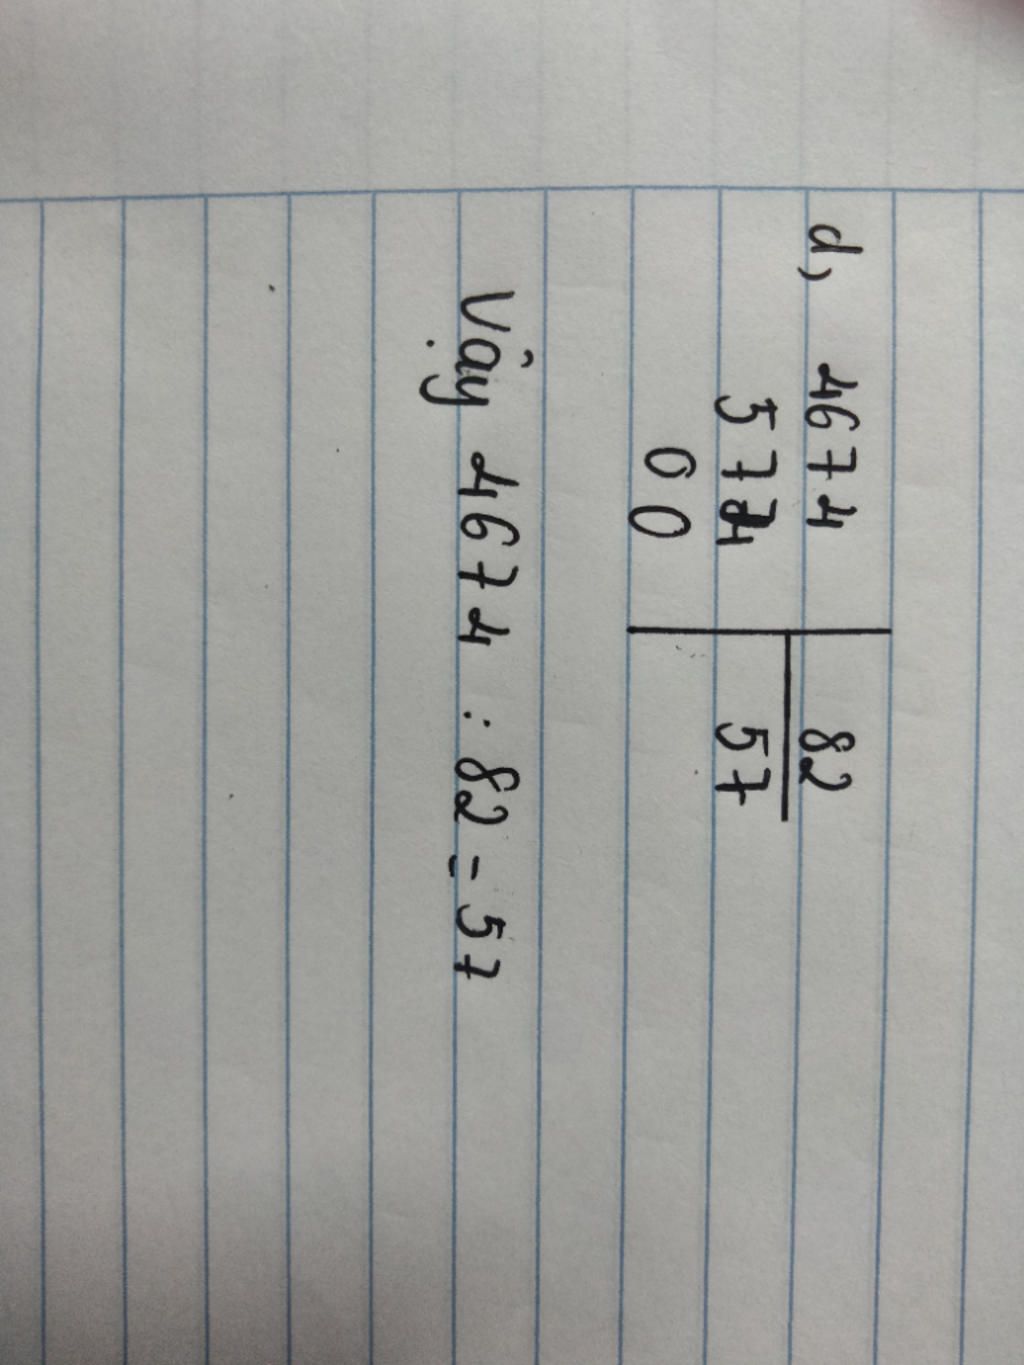 d, 4674 82
574 57
00
Vậy 4674 : 82 = 57